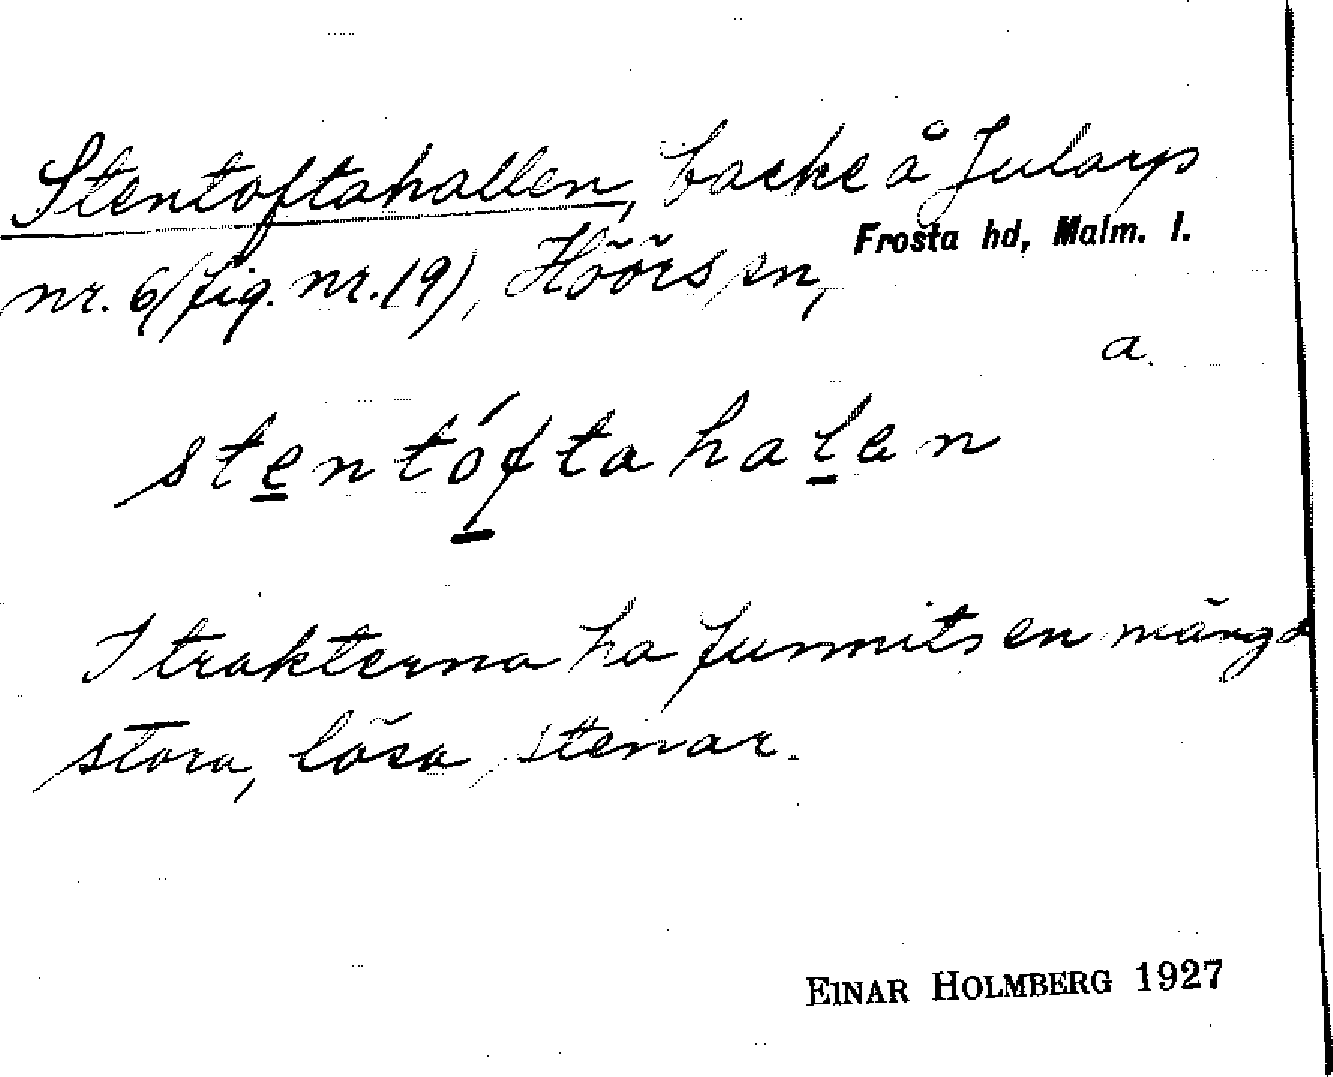 Stentoftahallen, backe å Jularp
nr. 6 (fig. nr. 19), Höörs sn,
Frosta hd, Malm. l.
a.
stentóftahalen
I trakterna ha funnits en mängd
stora, lösa stenar.
EINAR HOLMBERG 1927